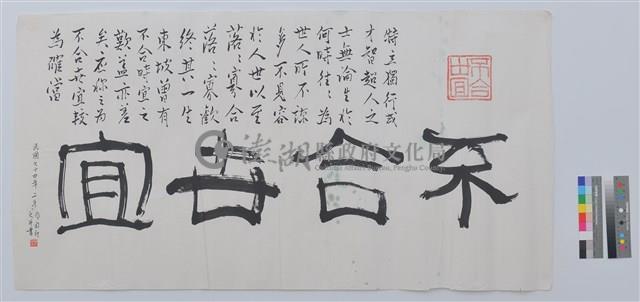 不合古宜
特立獨行或
才智超人之
士無論生於
何時往往為
世人所不諒
多不見容
於人世以至
落落寡合
落落寡歡
終其一生
東坡曾有
不合時宜之
歎蓋亦差
矣余称之為
不合古宜較
為確當
民國七十四年二月
澎湖縣政府文化局
Cultural Affairs Bureau, Penghu County